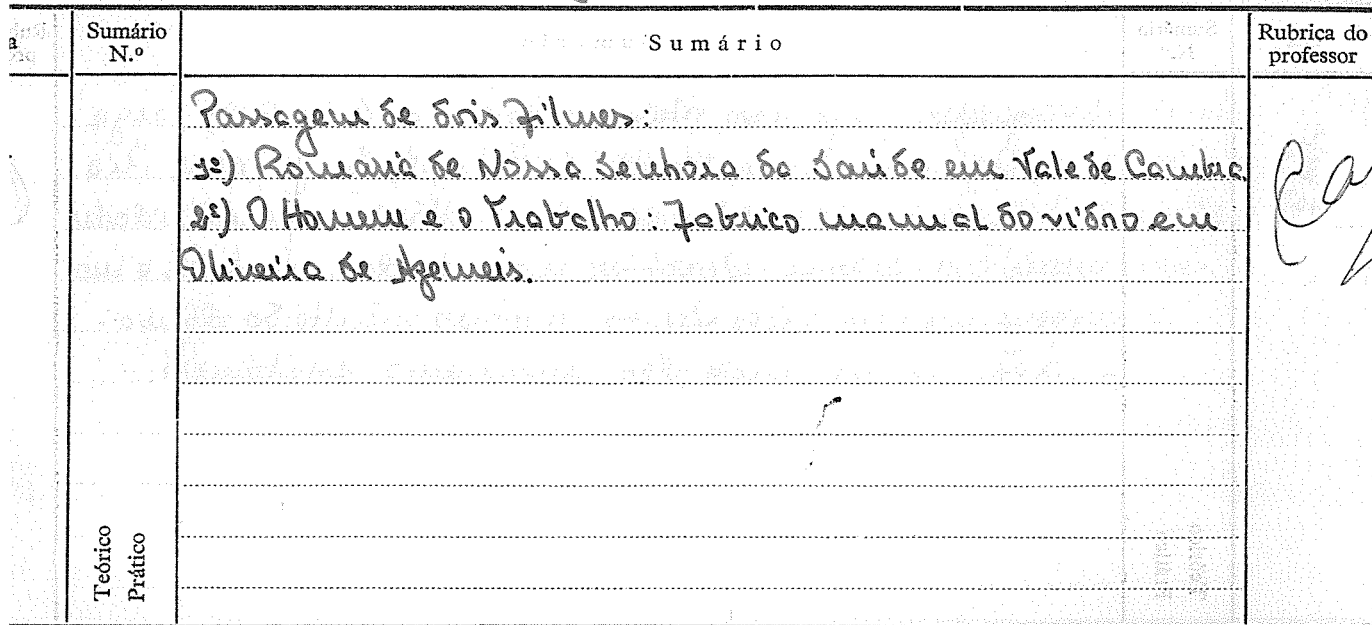 a
Sumário N.º
Sumário
Rubrica do professor
Passagem de dois filmes:
1º) Romaria de Nossa Senhora da Saúde em Vale de Cambra
2º) O Homem e o Trabalho: Fabrico manual do vidro em
Oliveira de Azemeis.
Teórico
Prático